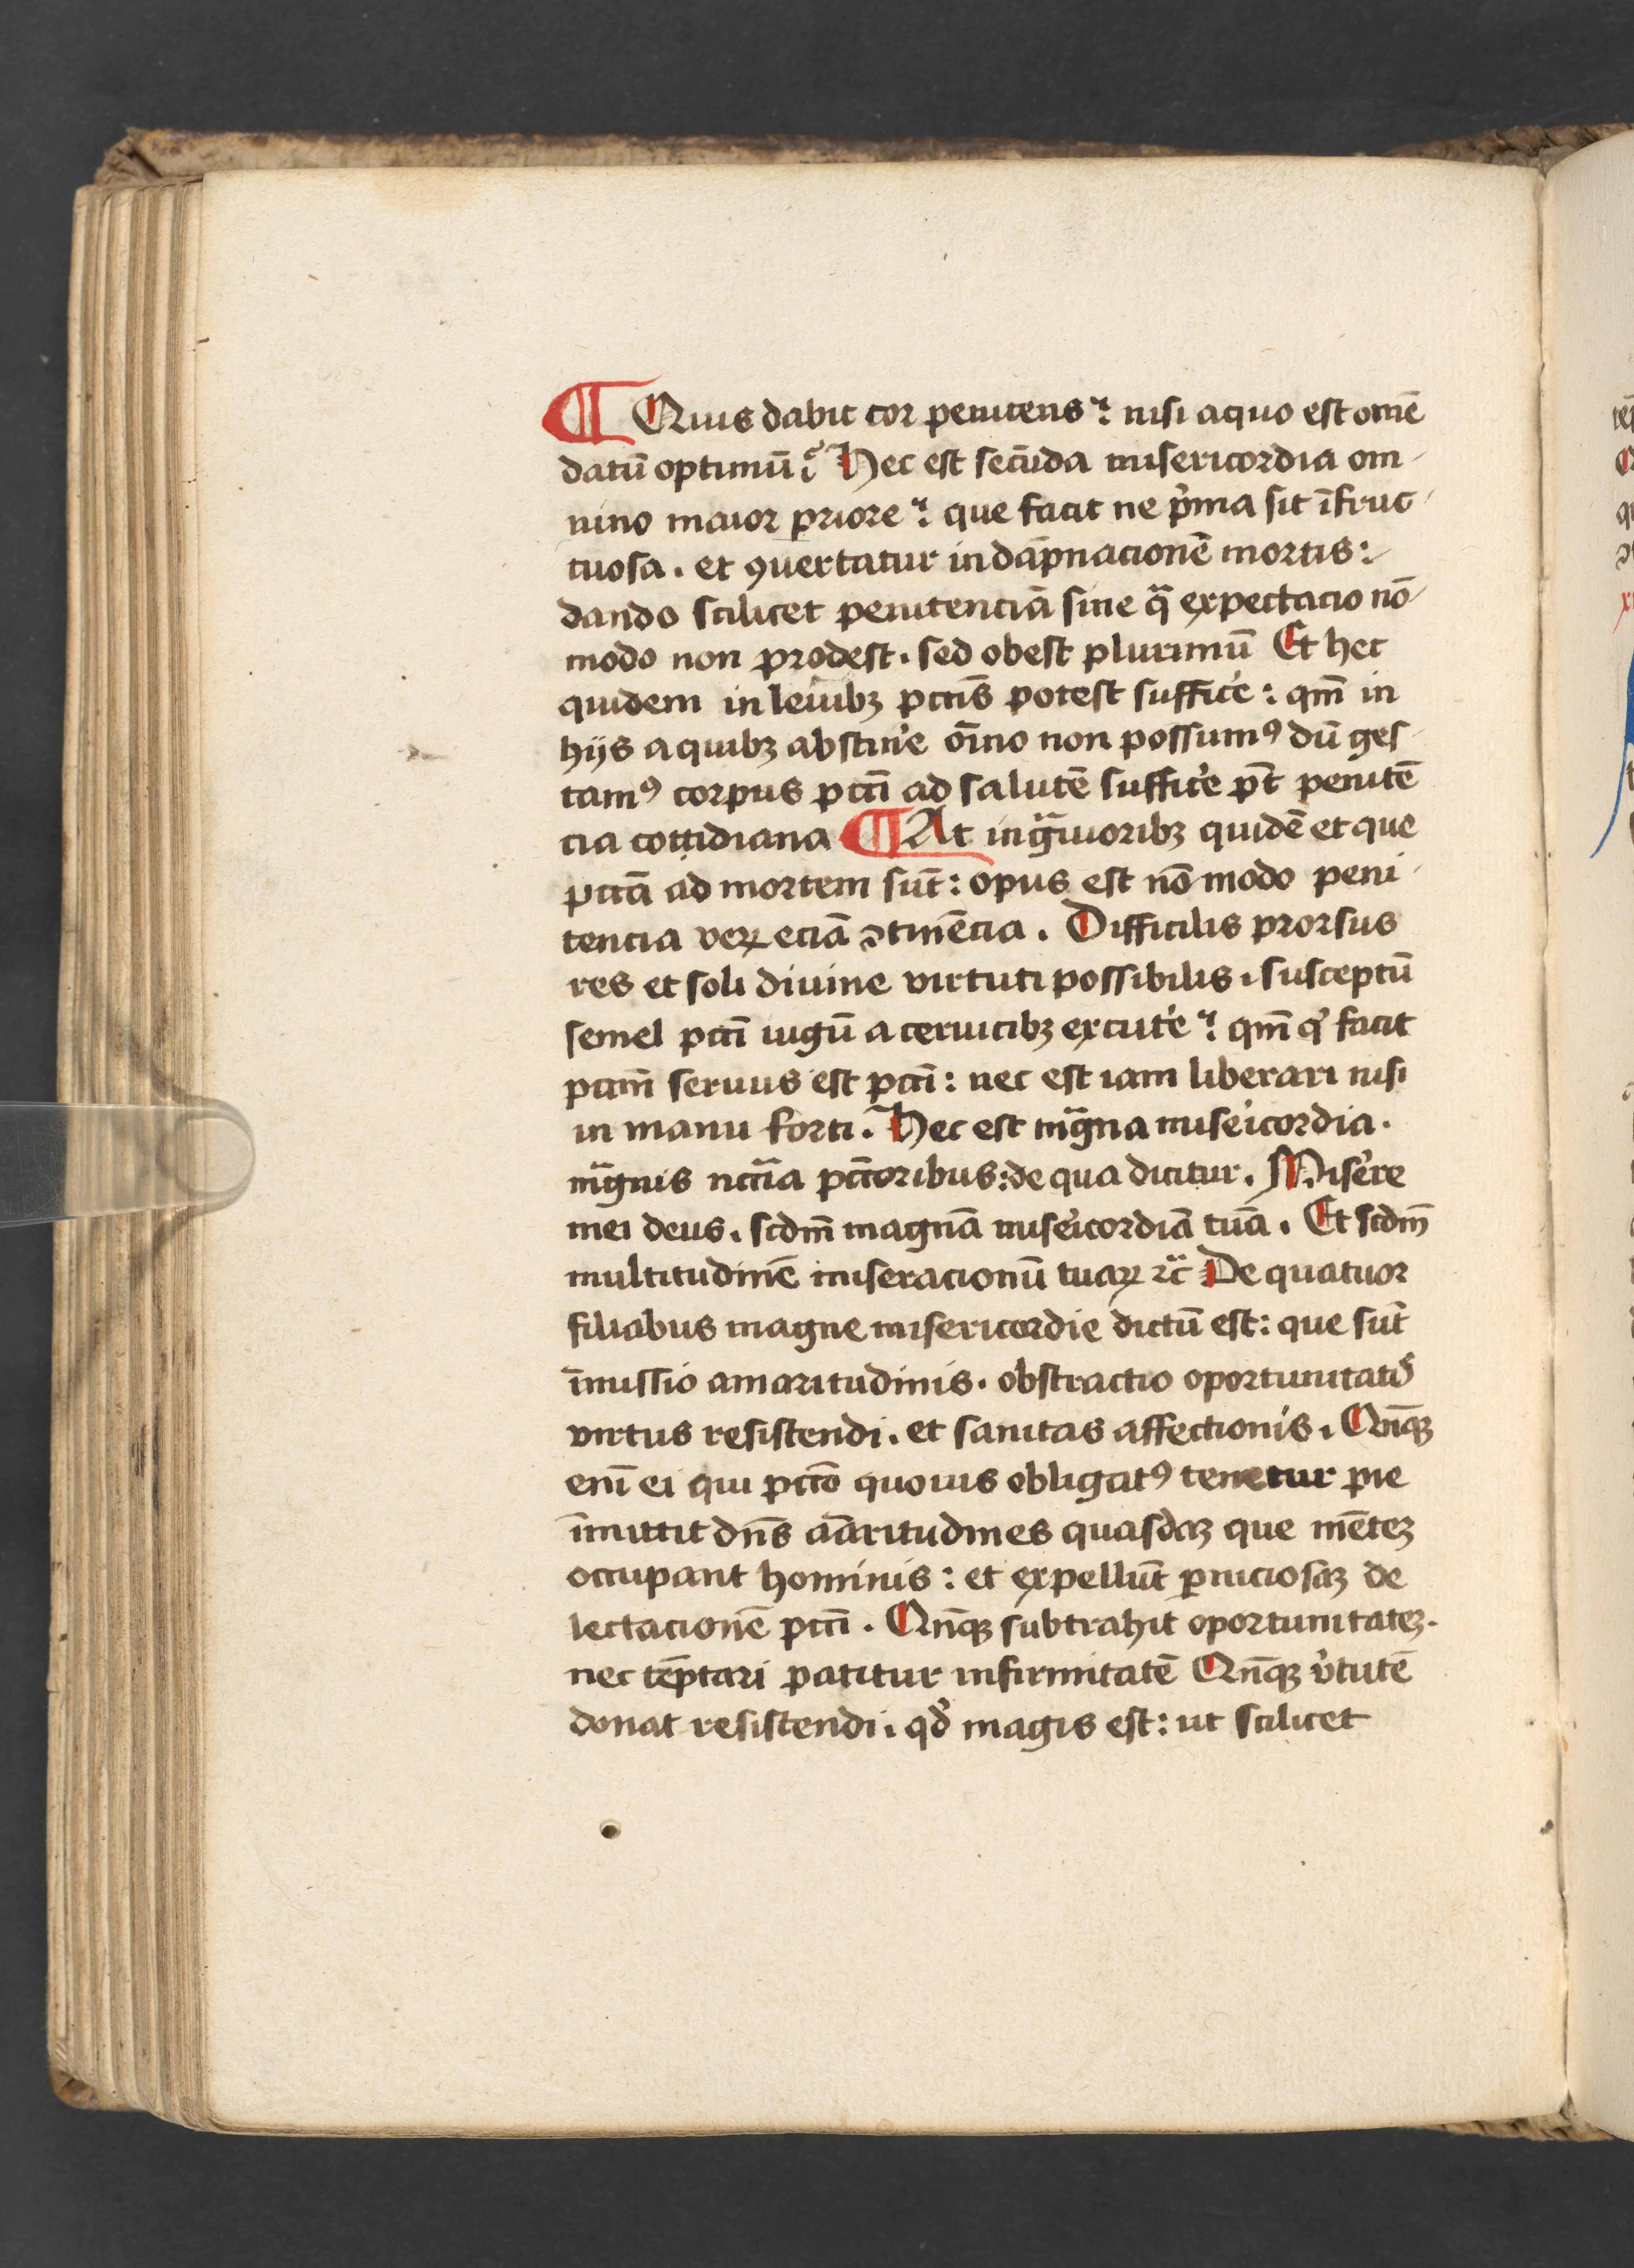 ¶ Quis dabit cor penitens? nisi a quo est omē
datū optimū? Hec est secūda misericordia om
nino maior priore? que facit ne pͥma sit īfruc
tuosa. et ꝯuertatur in dāpnacionē mortis:
dando scilicet penitenciā sine qͣ expectacio nō
modo non prodest. sed obest plurimū Et hec
quidem in leuibꝫ pctīs potest suffice͛: qm̄ in
hijs a quibꝫ abstine͛ oīno non possumꝰ dū ges
tamꝰ corpus pctī ad salutē suffice͛ pt̄ penitē
cia cottidiana ¶ At in gͣuioribꝫ quidē et que
pctā ad mortem sūt: opus est nō modo peni
tencia veꝝ eciā ꝯtinēcia. Difficilis prorsus
res et soli diuine virtuti possibilis. susceptū
semel pctī iugū a ceruicibꝫ excute͛? qm̄ qͥ facit
pctm̄ seruus est pctī: nec est iam liberari nisi
in manu forti. Hec est mͣgna mise͛icordia.
mͣgnis nctīa pctōribus: de qua dicitur. Mise͛re
mei deus. scdm̄ magnā mise͛icordiā tuā. Et scdm̄
multitudinē miseracionū tuaꝝ ⁊c̄ De quatuor
filiabus magne misericordie dictū est: que sūt
īmissio amaritudinis. obstractio oportunitatꝭ
virtus resistendi. et sanitas affectionis. Qn̄qꝫ
enī ei qui pctō quouis obligatꝰ tenetur pie
īmittit dn̄s aāritudines quasdaꝫ que mēteꝫ
occupant hominis: et expellūt ꝑniciosaꝫ de
lectacionē pctī. Qn̄qꝫ subtrahit oportunitateꝫ.
nec tēptari patitur infirmitatē Qn̄qꝫ v͛tutē
donat resistendi. qd̓ magis est: ut scilicet